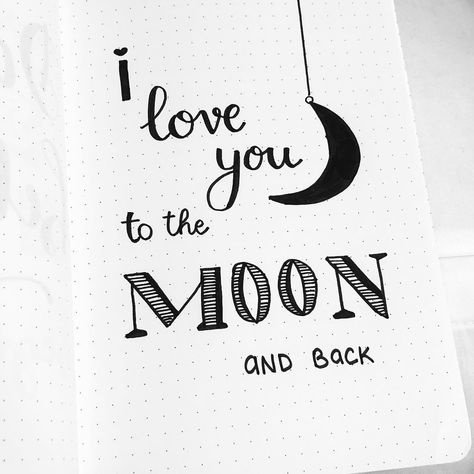 i
love
you
to the
MOON
AND BACK